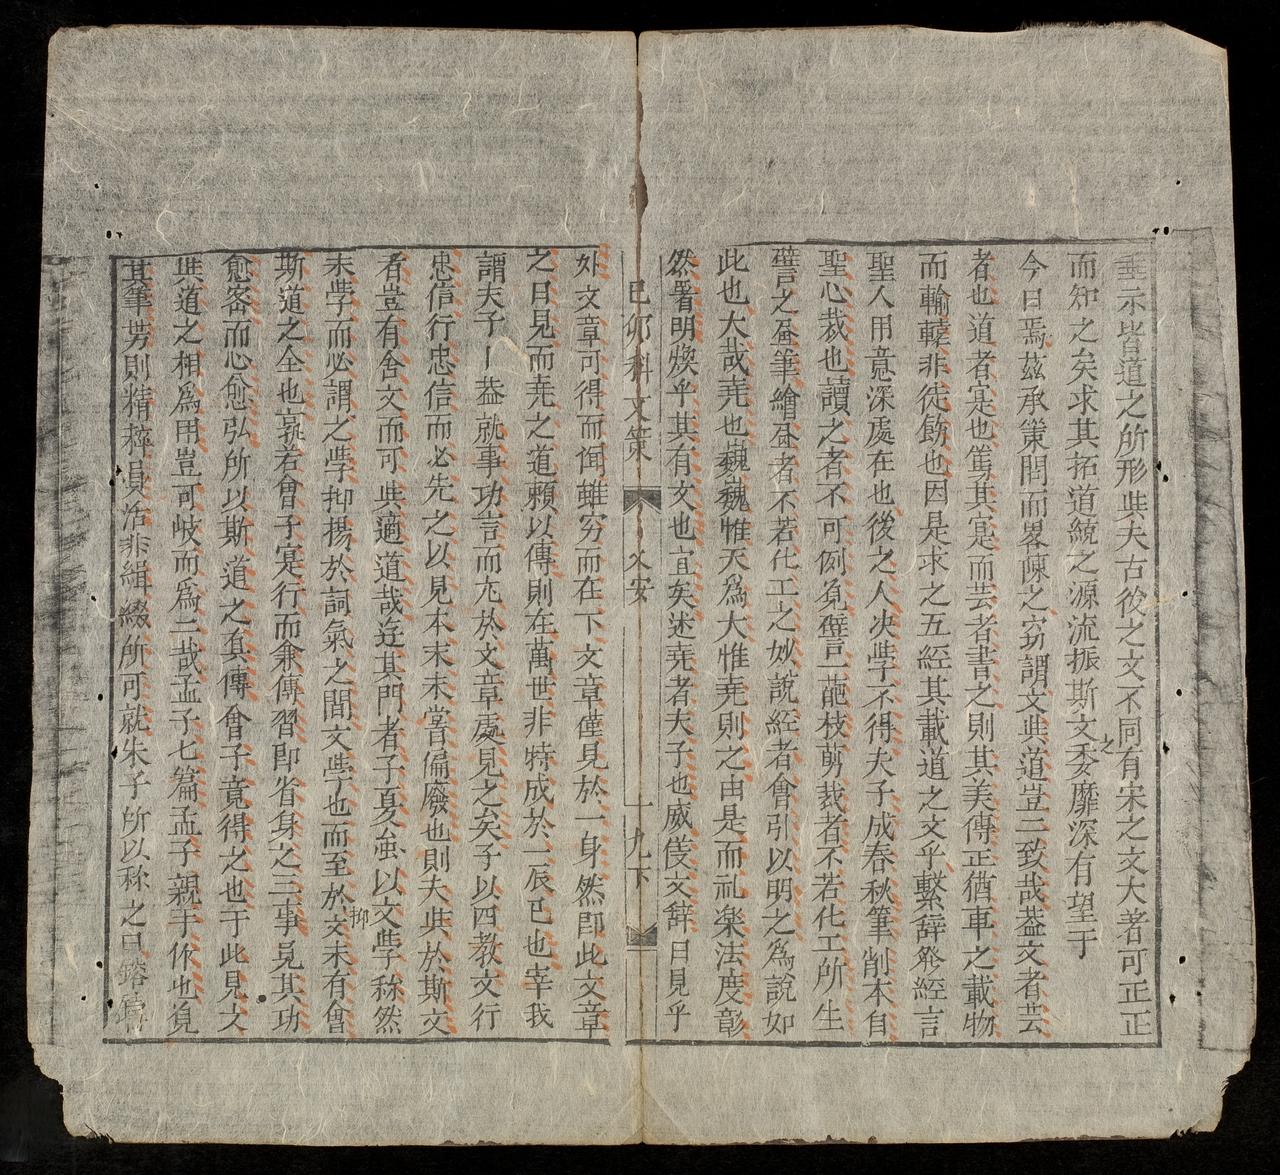 垂示皆道之所形與夫古後之文不同有宋之文大著可正正
而知之矣求其拓道統之源流振斯文之委靡深有望于
今日焉茲承策問而畧陳之窃謂文與道豈二致哉葢文者芸
者也道者寔也篤其寔而芸者書之則其美傳正猶車之載物
而輪轅非徒餙也因是求之五經其載道之文乎繫辞発經言
聖人用意深處在也後之人决學不得夫子成春秋筆削本自
聖心裁也讀之者不可例覓譬一葩枝剪裁者不若化工所生
譬之蚕筆繪昼者不若化工之妙說經者會引以明之為說如
此也大哉尭也巍巍惟天為大惟尭則之由是而礼楽法度彰
然著明煥乎其有文也宜矣述尭者夫子也威儀文辞日見乎
己卯科文策 文安 十九下
外文章可得而聞雖穷而在下文章僅見於一身然即此文章
之日見而尭之道頼以傳則在萬世非特成於一辰已也宰我
謂夫子 葢就事功言而尤於文章處見之矣子以四教文行
忠信行忠信而必先之以見本末未嘗偏廢也則夫與於斯文
者豈有舍文而可與適道哉逰其門者子夏虽以文學稱然
未學而必謂之學抑揚於詞氣之間文學也而至於文未有會
抑
斯道之全也孰若會子寔行而兼傳習即省身之三事見其功
愈密而心愈弘所以斯道之真傳會子竟得之也于此見文
與道之相為用豈可岐而為二哉孟子七篇孟子親手作也覓
其筆势則精粹負活非緝綴所可就朱子所以称之曰鎔鑄